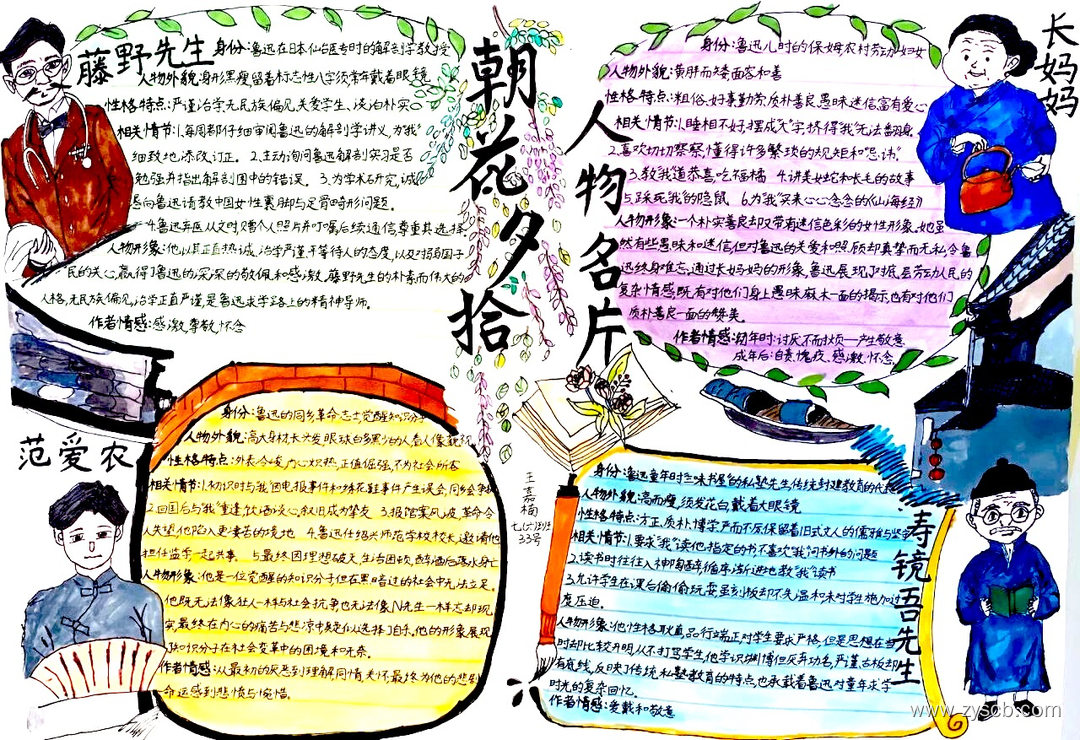 朝花夕拾
人物名片
藤野先生
身份:鲁迅在日本仙台医专时的解剖学教授
人物外貌:身形黑瘦留着标志性八字须常年戴着眼镜
性格特点:严谨治学无民族偏见,关爱学生、淡泊朴实
相关情节:1.每周都仔细审阅鲁迅的解剖学讲义,为"我"
细致地添改订正。2.主动询问鲁迅解剖实习是否
勉强并指出解剖图中的错误。3.为学术研究,诚
恳向鲁迅请教中国女性裹脚与足骨畸形问题。
人物形象:他以其正直热诚,治学严谨平等待人的态度,以及对弱国子
民的关心,赢得了鲁迅的深深的敬佩和感激,藤野先生的朴素而伟大的
人格,无民族偏见,治学正直严谨是鲁迅求学路上的精神导师。
作者情感:感激,尊敬,怀念
长妈妈
身份:鲁迅儿时的保姆农村劳动妇女
人物外貌:黄胖而矮面容和善
性格特点:粗俗、好事勤劳,质朴善良愚昧迷信,富有爱心
相关情节:1.睡相不好,摆成"大"字,挤得"我"无法翻身
2.喜欢切切察察,懂得许多繁琐的规矩和"忌讳"
3.教我道恭喜吃福橘 4.讲美女蛇和长毛的故事
5.踩死我的隐鼠 6.为我"买来心心念念的《山海经》
人物形象:一个朴实善良却又带有迷信色彩的女性形象,她虽
然有些愚昧和迷信但对鲁迅的关爱和照顾却真挚而无私,令鲁
迅终身难忘,通过长妈妈的形象,鲁迅展现了对底层劳动人民的
复杂情感,既有对他们身上愚昧麻木一面的揭示,也有对他们
质朴善良一面的赞美。
作者情感:幼年时:讨厌不耐烦—产生敬意
成年后:自责、愧疚、感激、怀念
范爱农
身份:鲁迅的同乡革命志士,觉醒知识分子
人物外貌:高大身材长头发,眼球白多黑少的人看人像藐视
性格特点:外表冷峻,内心炽热,正值倔强,不为社会所容
2.回国后与"我"重逢,饮酒谈心,叙旧成为挚友 3.报馆案风波,革命令
人失望他陷入更凄苦的境地 4.鲁迅任绍兴师范学校校长,邀请他
担任监学一起共事。5.最终因理想破灭,生活困顿,醉酒后落水身亡
人物形象:他是一位觉醒的知识分子但在黑暗过的社会中无法立足。
他既无法像狂人一样与社会抗争也无法像N先生一样忘却现
实,最终在内心的痛苦与悲凉中疑似选择了自杀,他的形象展现
了知识分子在社会变革中的困境和无奈。
作者情感:从最初的厌恶到理解同情关怀,最终为他的悲剧
命运感到悲愤与惋惜。
王嘉楠
33号
寿镜吾先生
身份:鲁迅童年时"三味书屋"的私塾先生,传统封建教育的代表
人物外貌:高而瘦,须发花白,戴着大眼镜
性格特点:方正,质朴博学,严而不厉,保留着旧式文人的儒雅与坚守
相关情节:1.要求"我"读他指定的书不喜欢"我"问书外的问题
2.读书时往往入神陶醉,循序渐进地教"我"读书
3.允许学生在课后偷偷玩耍,虽备戒尺却不失温和,未对学生施加过
度压迫。
人物形象:他性格耿直,品行端正,对学生要求严格,但是思想在当
时却比较开明,从不打骂学生,他学识渊博但厌弃功名,严谨、古板却
有底线,反映了传统私塾教育的特点,也承载着鲁迅对童年求学
时光的复杂回忆。
作者情感:爱戴和敬意
www.zyscb.com